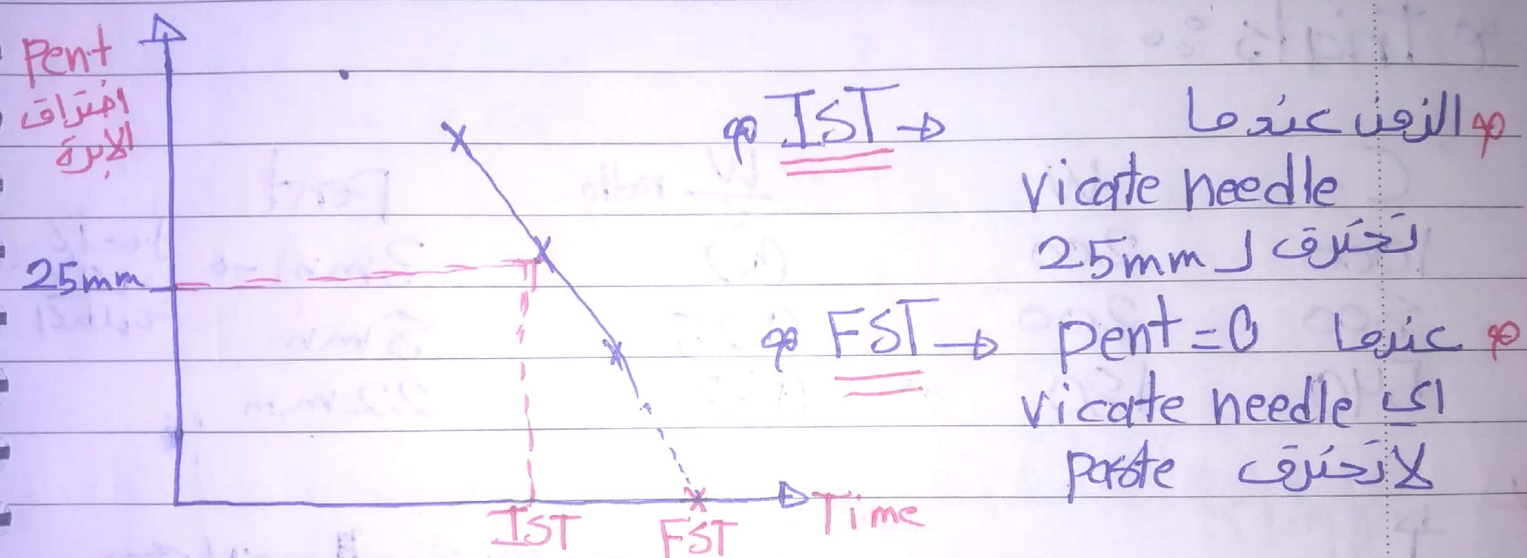 Pent
اختراق
الابرة
25mm
IST
FST
Time
IST → الزمن عندما
vicate needle
تخترق ل 25mm
FST → عندما pent = 0
اي vicate needle
لا تخترق paste